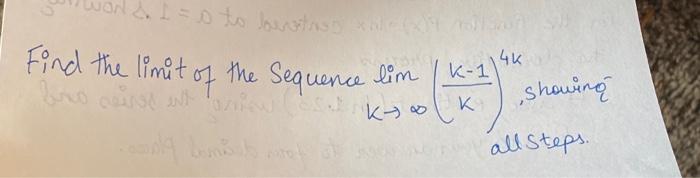 Find the limit of the Sequence lim k→∞ ((k-1)/k)^4k, showing
all steps.